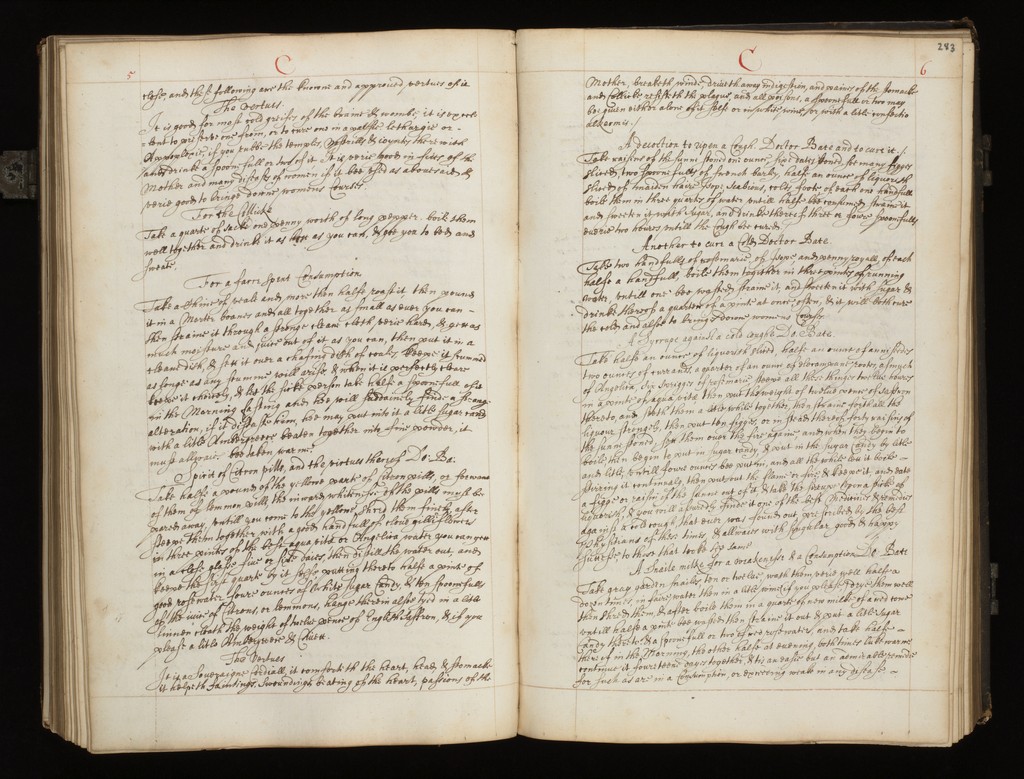 5
C
close, and these following are the knowne and approved, vertues of it
The Vertues.
It is good for most cold griefes of the braine & wombe; it is excel=
=lent to preserve one from, or to cure one in a palsie, lethargie or =
Appoplexie, if you rubb the temples, Nostrills & ioynts there with
and drinke a spoonfull or two of it. It is verie good in fites of the
Mother and many diseases of women if it bee used as abovesaid, &
verie good to bringe downe womens Courses
For the Collicke
Take a quarte of sacke one penny worth of long pepper. boile them
well together and drinke it as hott as you can, & get you to bed and
sweate.
For a farre spent Consumption
Take a Chine of veale and more then halfe roast it then pound
it in a Morter boanes and all together as small as ever you can =
then straine it through a stronge cleane cloth, verie hard, & gett as
much moisture and juice out of it as you can, then put it in a
cleane dish, & sett it over a chafing dish of coales keepe it scummed
as longe as any scumme will arise, & when it is perfectly cleare
keepe it choicely, & let the sicke person take halfe a spoonefull of it
in the Morning fasting and hee will suddainely finde a strange
alteration, if it distaste him, hee may put into it a little sugar candy
with a little Ambergreece beaten together into fine powder, it
must allwaies bee taken warme.
Spirit of Citron pills, and the virtues thereof Do: Ba:
Take halfe a pound of the yellow parts of Citron pills, or for want
of them of lemmon pills, the inward whitenesse of the pills must be
pared away, untill you come to the yellow, shred them finely, after
steepe them together with a good handfull of clove gilliflowers
in three pintes of the best aqua vitae or Angelica water you can gett
in a close glasse five or six daies, then distill the water out, and
keepe the first quarte by it selfe putting thereto halfe a pinte of
good rosewater, foure ounces of white sugar Candy, & ten spoonfulls
of the juice of Citrons, or lemmons, hange therein also tyed in a little
linnen cloath the weight of twelve pence of English Saffron, & if you
please a little Ambergreece & Musk.
The Vertues
It is a Soveraigne Cordiall, it comforteth the heart, head, & stomacke
it helpeth faintings, swoundings, beating of the heart, passions of the
283
C
6
Mother, breaketh winde, driveth away indigestion, and paines of the stomacke
and collicke, resisteth the plague, and all poisons, a spoonfull or two may
bee given either alone of it selfe or in white wine, or with a little confectio
alkermis ./
A decoction to ripen a Cough. Doctor Bate and to cure it ./
Take raisins of the sunn stoned one ounce, four dates stoned, six many figges
sliced, two spoonefulls of french barly, halfe an ounce of liquorish
sliced, of maiden haire, isop, scabious, colts foote of each one handfull
boile them in three quarts of water untill halfe bee consumed, straine it
and sweeten it with sugar, and drinke thereof three or foure spoonfulls
everie two houres untill the Cough bee cured.
Another to cure a Cold Doctor Bate.
Take two handfulls of rosemarie, of isope and pennyroyall, of each
halfe a handfull, boile them together in three pintes of running
water, untill one bee wasted, straine it, and sweeten it with sugar, &
drinke thereof a quarter of a pinte at once, often, & it will both cure
the cold and alsoe to bringe downe womens Courses
A Syrrope against a cold Cough Do: Bate.
Take halfe an ounce of liquorish sliced, halfe an ounce of anniseedes
two ounces of currants, a quarter of an ounce of elecampane rootes, asmuch
of Angelica, six spriggs of rosemarie, steepe all these things twelve houres
in a pinte of aqua vitae, then put the weight of twelve pence of saffron
thereto and seeth them a little while together, then straine forth all the
liquour strongly, then put ten figges, or in stead thereof forty raisins of
the sunn stoned, sett them over the fire againe, and when they begin to
boile then begin to put in sugar candy, & put in the sugar candy by little
and little, untill foure ounces bee put in, and all the while lett it boile =
stirring it continually, then put out the flame or fire & keepe it, and eate
a figge or raisin of the sunne out of it & take the sirupe upon a stick of
liquorish, & you will assuredly finde it one of the best Medicines & remidies
against a cold cough that ever was found out, prescribed by the best
Physitians of these times, & allwaies with singular, good, & happy
successe, to those that tooke the same
A Snaile milke for a weakenesse & a Consumption Do: Bate
Take gray garden snailes, ten or twelve, wash them verie well halfe a
dozen times in faire water then in a little wine, if you please, drye them well
then shred them, & after boile them in a quarte of new milke of a red cowe
untill halfe a pint bee wasted then straine it out & put a little sugar
candy thereto, & a spoonefull or two of red rosewater, and take halfe =
thereof in the Morning, the other halfe at evening, both times luke warme
continue it fourteene dayes together, & tis an easie but an admirable remidie
for such as are in a Consumption, or exceeding weake in any disease. ~